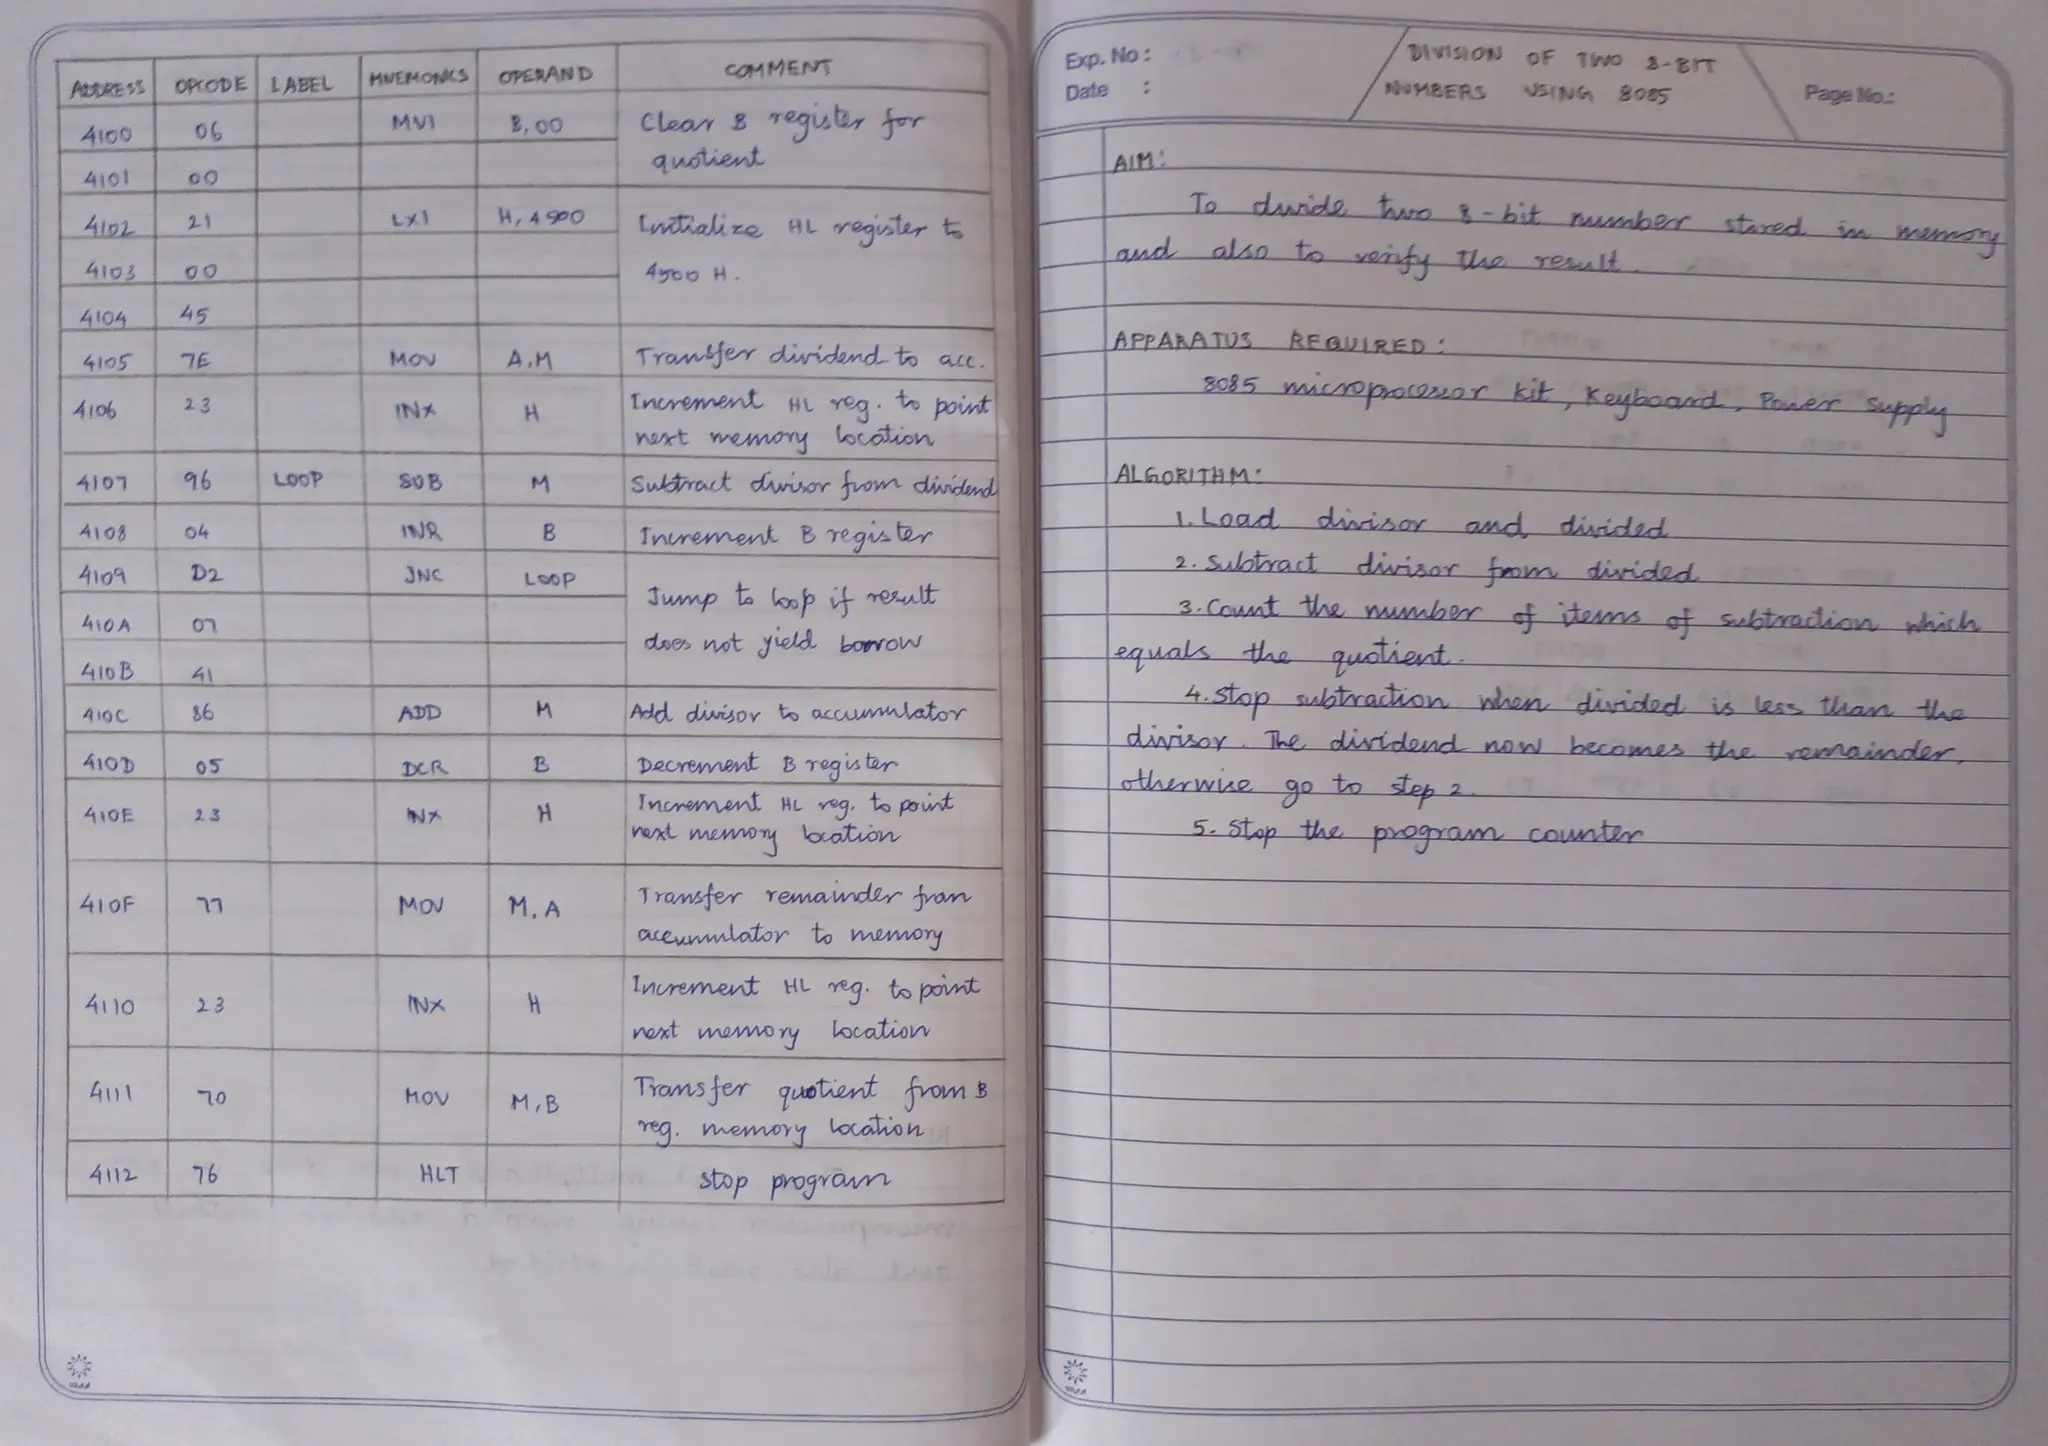 ADDRESS OPCODE LABEL MNEMONICS OPERAND COMMENT
4100 06 MVI B, 00 Clear B register for
quotient
4101 00
4102 21 LXI H, 4500 Initialize HL register to
4103 00 4500 H.
4104 45
4105 7E MOV A,M Transfer dividend to acc.
4106 23 INX H Increment HL reg. to point
next memory location
4107 96 LOOP SUB M Subtract divisor from dividend
4108 04 INR B Increment B register
4109 D2 JNC LOOP Jump to loop if result
410A 07 does not yield borrow
410B 41
410C 86 ADD M Add divisor to accumulator
410D 05 DCR B Decrement B register
410E 23 INX H Increment HL reg. to point
next memory location
410F 77 MOV M, A Transfer remainder from
accumulator to memory
4110 23 INX H Increment HL reg. to point
next memory location
4111 70 MOV M,B Transfer quotient from B
reg. memory location
4112 76 HLT stop program
Exp. No :
Date :
DIVISION OF TWO 8-BIT
NUMBERS USING 8085
Page No.:
AIM:
To divide two 8-bit number stored in memory
and also to verify the result.
APPARATUS REQUIRED :
8085 microprocessor kit, Keyboard, Power Supply
ALGORITHM:
1. Load divisor and divided
2. Subtract divisor from divided
3. Count the number of items of subtraction which
equals the quotient.
4. Stop subtraction when divided is less than the
divisor. The dividend now becomes the remainder,
otherwise go to step 2.
5. Stop the program counter